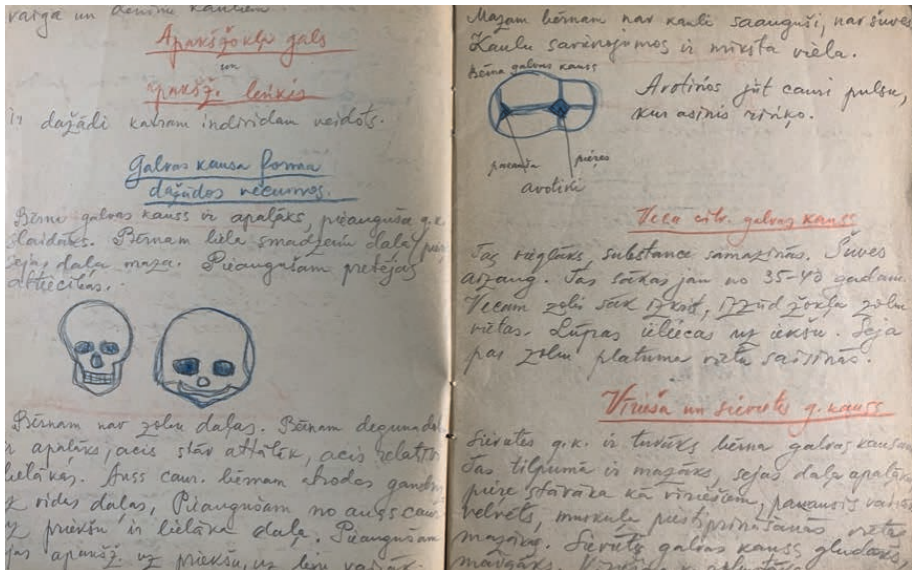 varga un deniņu kauliem
Apakšžokļa gals
un
apakšž. leņķis
ir dažādi katram individam veidots.
Galvas kausa forma
dažādos vecumos.
Bērna galvas kauss ir apaļāks, pieauguša g.k.
slaidāks. Bērnam liela smadzeņu daļa,
sejas daļa maza. Pieaugušam pretējas
attiecības.
Bērnam nav zobu daļas. Bērnam deguna
ir apaļāks, acis stāv attālāk, acis relatīvi
lielākas. Auss caur. bērnam atrodas gandrīz
uz vidus daļas, Pieaugušam no auss caur.
uz priekšu ir lielāka daļa. Pieaugušam
apakšž. uz priekšu, uz leju vairāk
Mazam bērnam nav kauli saauguši, nav šuves
Kaulu savienojumos ir mīksta viela.
Bērna galvas kauss
Avotiņos jūt cauri pulsu,
kur asinis riņķo.
pakauša pieres
avotiņi
Veca cilv. galvas kauss
Tas vieglāks, substance samazinās. Šuves
aizaug. Tas sākas jau no 35-40 gadam.
Vecam zobi sāk izkrist, izzūd žokļa zobu
vietas. Lūpas ieliecas uz iekšu. Seja
par zobu platuma vietu saīsinās.
Vīrieša un sievietes g. kauss
Sievietes g.k. ir tuvāks bērna galvas kausam
Tas tilpumā ir mazāks, sejas daļa apaļāka
piere stāvāka kā vīriešiem, pakausis vairāk
velvēts, muskuļu piestiprināšanās vietas
mazākas. Sievietes galvas kauss gludāks,